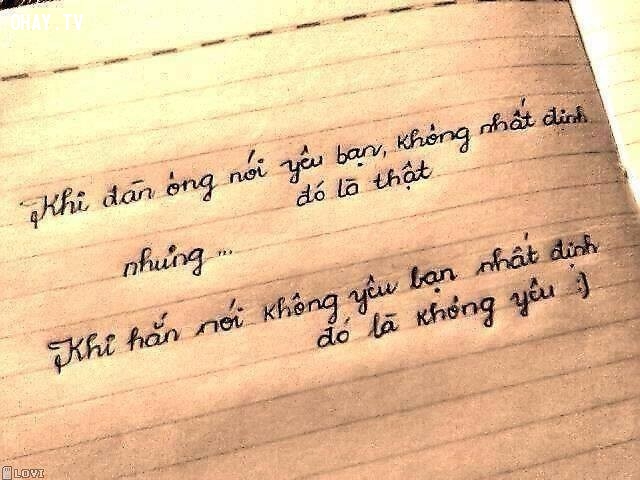 OHAY.TV
Khi đàn ông nói yêu bạn, không nhất định
đó là thật
nhưng ...
Khi hắn nói không yêu bạn nhất định
đó là không yêu :)
LOVI